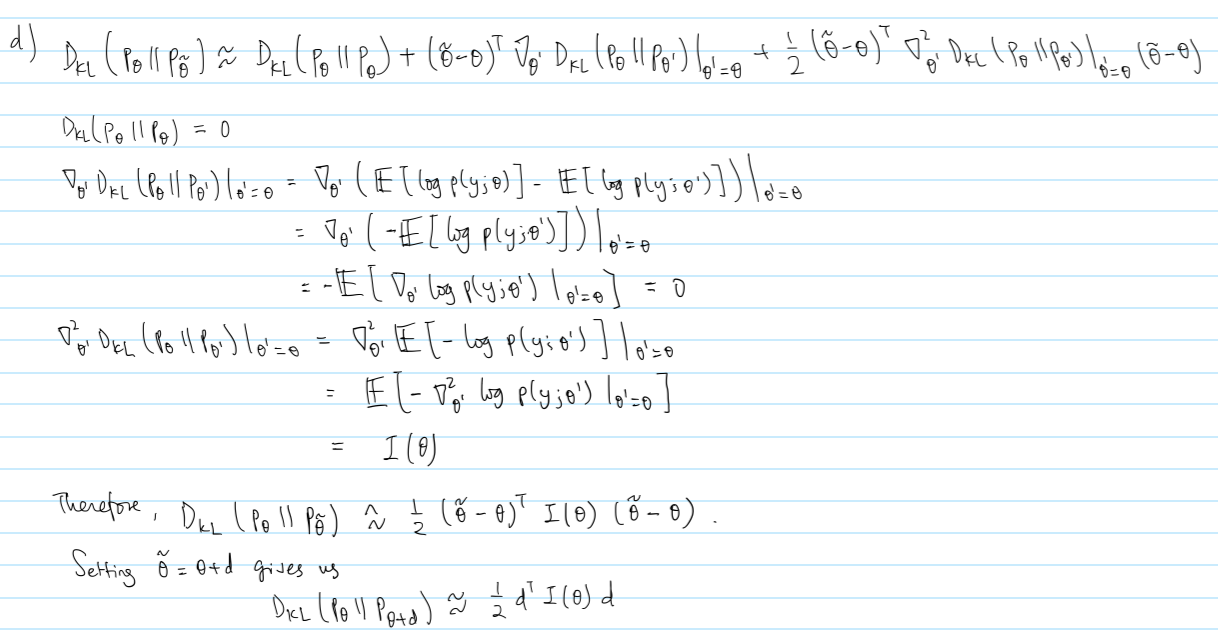 d) D_KL(P_θ || P_θ̃) ≈ D_KL(P_θ || P_θ) + (θ̃-θ)^T ∇_θ' D_KL(P_θ || P_θ')|_θ'=θ + 1/2 (θ̃-θ)^T ∇²_θ' D_KL(P_θ || P_θ')|_θ'=θ (θ̃-θ)
D_KL(P_θ || P_θ) = 0
∇_θ' D_KL(P_θ || P_θ')|_θ'=θ = ∇_θ' (𝔼[log p(y;θ)] - 𝔼[log p(y;θ')])|_θ'=θ
= ∇_θ' (-𝔼[log p(y;θ')])|_θ'=θ
= -𝔼[∇_θ' log p(y;θ')|_θ'=θ] = 0
∇²_θ' D_KL(P_θ || P_θ')|_θ'=θ = ∇²_θ' 𝔼[-log p(y;θ')]|_θ'=θ
= 𝔼[-∇²_θ' log p(y;θ')|_θ'=θ]
= I(θ)
Therefore, D_KL(P_θ || P_θ̃) ≈ 1/2 (θ̃-θ)^T I(θ) (θ̃-θ).
Setting θ̃ = θ+d gives us
D_KL(P_θ || P_θ+d) ≈ 1/2 d^T I(θ) d